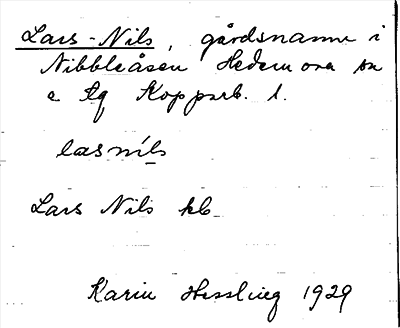 Lars-Nils, gårdsnamn i
Nibbleåsen Hedemora sn
o lg Kopparb. l.
læsnils
Lars Nils kb
Karin Hessling 1929